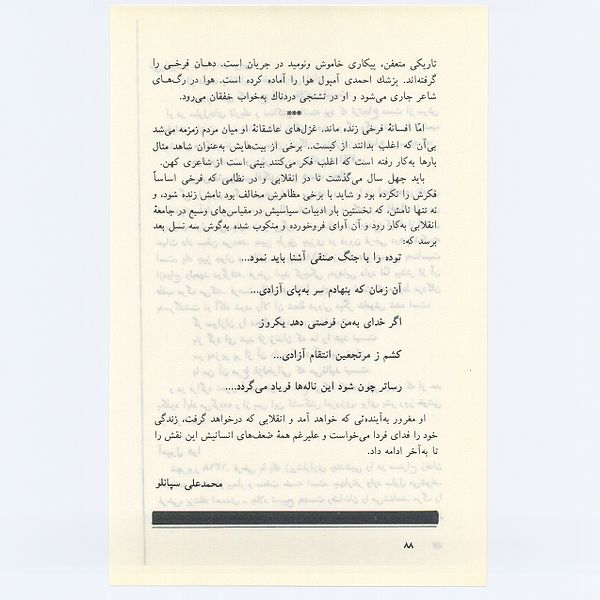 تاریکی متعفن، پیکاری خاموش ونومید در جریان است. دهـان فرخـی را
گرفته‌اند. پزشك احمدی آمپول هوا را آماده کرده است. هوا در رگ‌های
شاعر جاری می‌شود و او در تشنجی دردناك به‌خواب خفقان می‌رود.
***
امّا افسانهٔ فرخی زنده ماند. غزل‌های عاشقانهٔ او میان مردم زمزمه می‌شد
بی‌آن که اغلب بدانند از کیست.. برخی از بیت‌هایش به‌عنوان شاهد مثال
بارها به‌کار رفته است که اغلب فکر می‌کنند بیتی است از شاعری کهن.
باید چهل سال می‌گذشت تا در انقلابی و در نظامی که فرخی اساساً
فکرش را نکرده بود و شاید با برخی مظاهرش مخالف بود نامش زنده شود، و
نه تنها نامش، که نخستین بار ادبیات سیاسیش در مقیاس‌های وسیع در جامعهٔ
انقلابی به‌کار رود و آن آوای فروخورده و منکوب شده به‌گوش سه نسل بعد
برسد که:
توده را با جنگ صنفی آشنا باید نمود...
آن زمان که بنهادم سر به‌پای آزادی...
اگر خدای به‌من فرصتی دهد یکروز
کشم ز مرتجعین انتقام آزادی...
رساتر چون شود این ناله‌ها فریاد می‌گردد....
او مغرور به‌آینده‌ئی که خواهد آمد و انقلابی که درخواهد گرفت، زندگی
خود را فدای فردا می‌خواست و علیرغم همهٔ ضعف‌های انسانیش این نقش را
تا به‌آخر ادامه داد.
محمدعلی سپانلو
۸۸